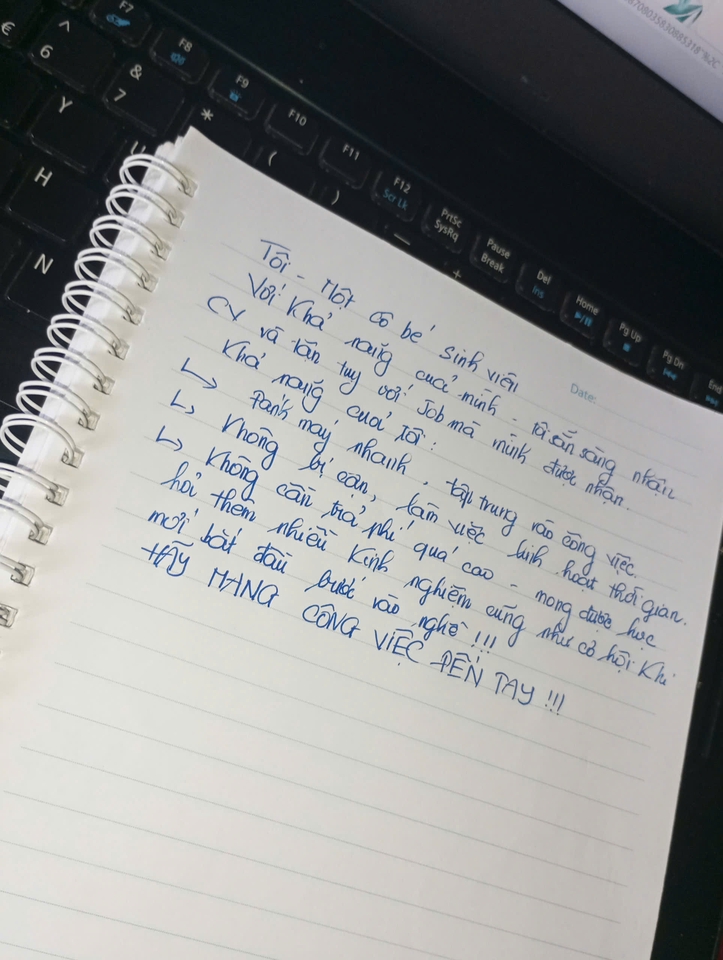 708035830885318"%2C
€
^
6
&
7
*
(
)
Y
U
H
N
F7
F8
F9
F10
F11
F12
Scr Lk
PrtSc
SysRq
Pause
Break
Del
Ins
Home
Pg Up
Pg Dn
End
—
+
Date:
Tôi - Một cô bé sinh viên
Với khả năng của mình. Tôi sẵn sàng nhận
CV và tận tụy với Job mà mình được nhận.
Khả năng của tôi:
↳ Đánh máy nhanh, tập trung vào công việc.
↳ Không bị cận, làm việc linh hoạt thời gian.
↳ Không cần trả phí quá cao - mong được học
hỏi thêm nhiều kinh nghiệm cũng như cơ hội khi
mới bắt đầu bước vào nghề !!!
HÃY MANG CÔNG VIỆC ĐẾN TAY !!!